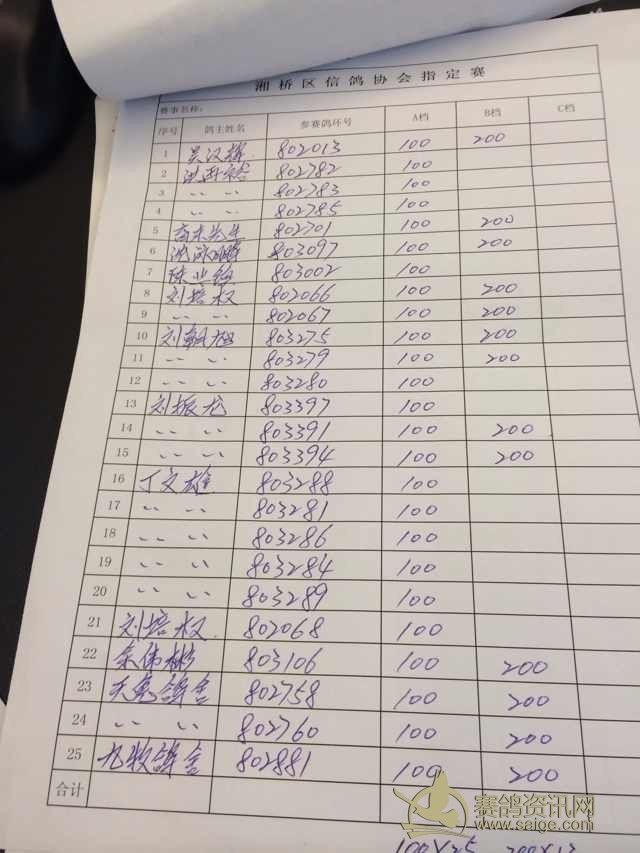 湘桥区信鸽协会指定赛
赛事名称:
序号 鸽主姓名 参赛鸽环号 A档 B档 C档
1 吴汉辉 802013 100 200
2 802782 100
3 〃 〃 802783 100
4 〃 〃 802785 100
5 802701 100 200
6 803097 100 200
7 803002 100
8 刘培权 802066 100 200
9 〃 〃 802067 100 200
10 803275 100 200
11 〃 〃 803279 100 200
12 〃 〃 803280 100
13 刘振龙 803397 100
14 〃 〃 803391 100 200
15 〃 〃 803394 100 200
16 丁文雄 803288 100
17 〃 〃 803281 100
18 〃 〃 803286 100
19 〃 〃 803284 100
20 〃 〃 803289 100
21 刘培权 802068 100
22 余伟彬 803106 100 200
23 802758 100 200
24 〃 〃 802760 100 200
25 九牧鸽舍 802881 100 200
合计
100×25 200×13
赛鸽资讯网
www.saige.com